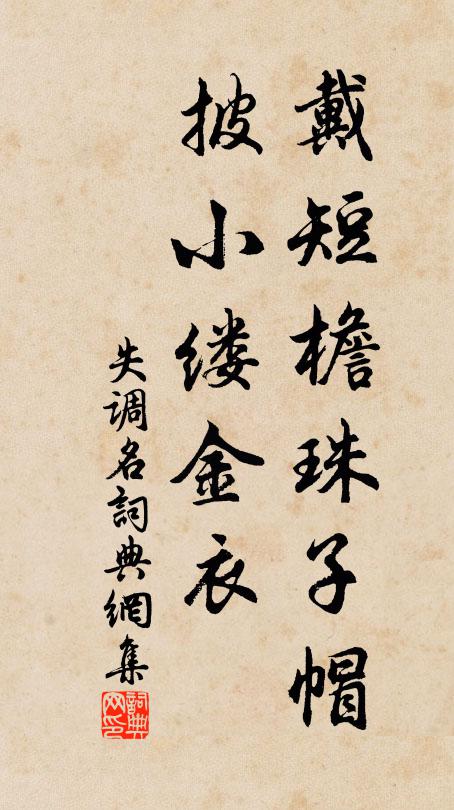 戴短檐珠子帽
披小缕金衣
失调名詞典網集
詞典
网印